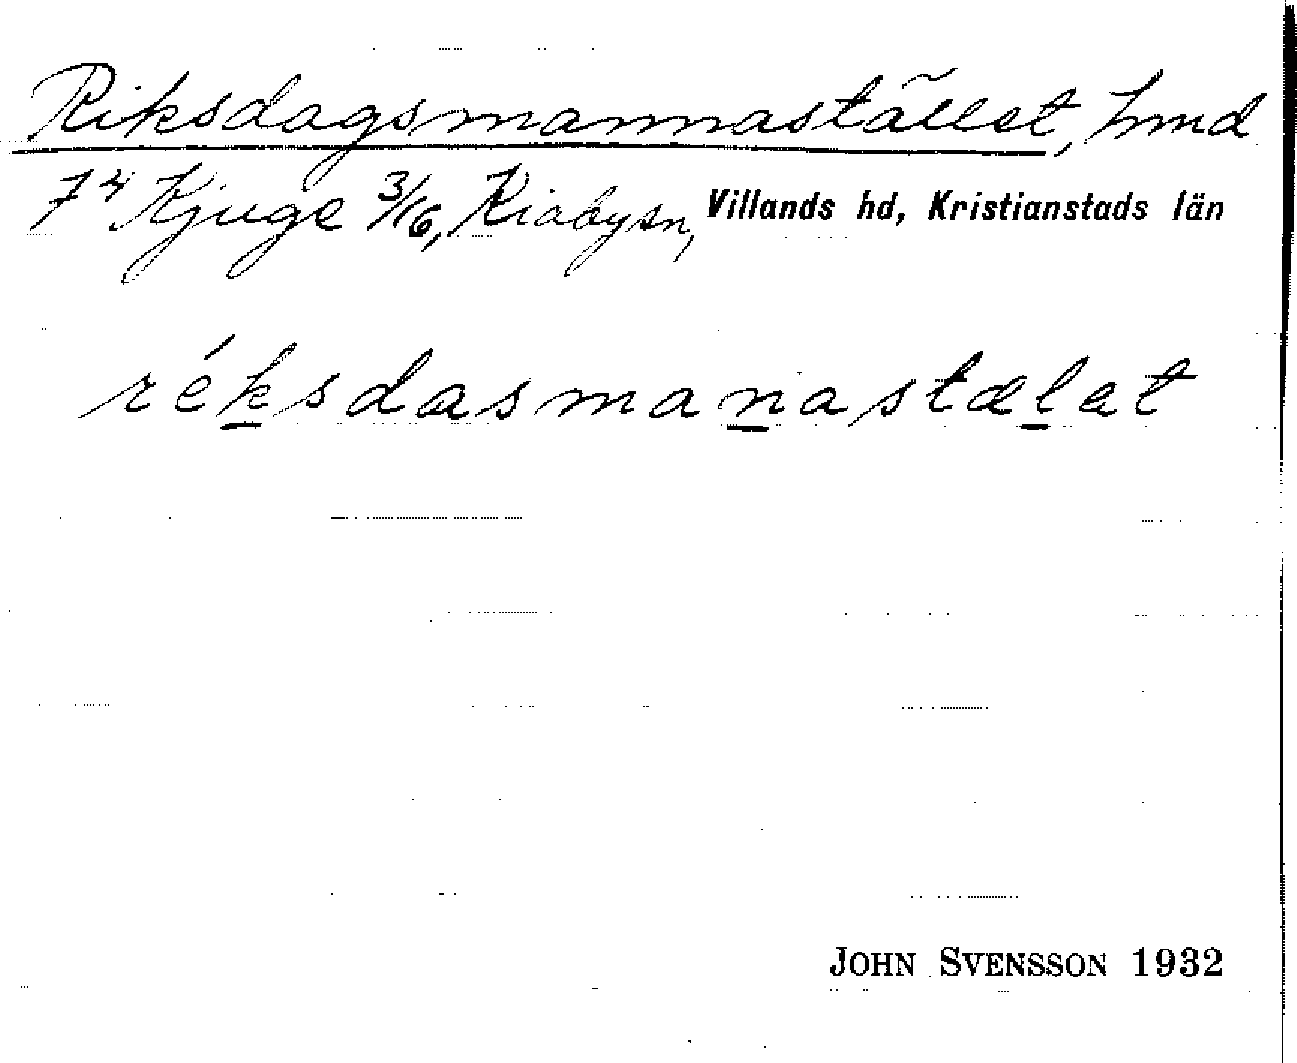 Riksdagsmannastället, hmd
7⁴ Kjuge 3/16, Kiaby sn, Villands hd, Kristianstads län
réksdasmanastælat
JOHN SVENSSON 1932